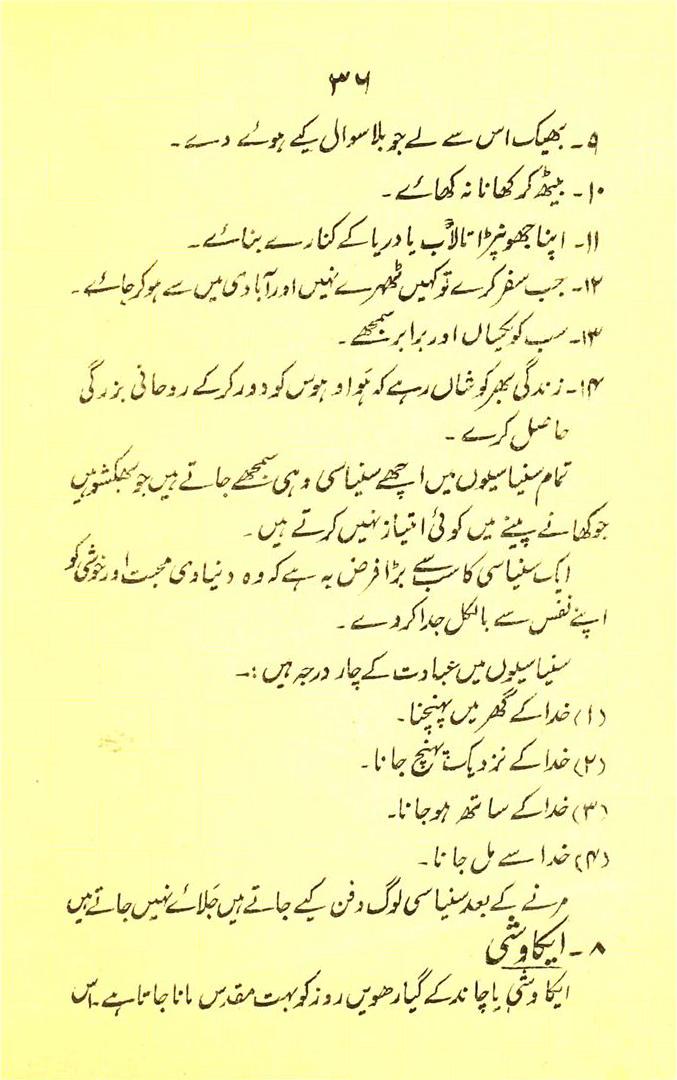 ۳۶
۹۔ بھیک اس سے لے جو بلا سوال کیے ہوئے دے۔
۱۰۔ بیٹھ کر کھانا نہ کھائے۔
۱۱۔ اپنا جھونپڑا تالاب یا دریا کے کنارے بنائے۔
۱۲۔ جب سفر کرے تو کہیں ٹھہرے نہیں اور آبادی میں سے ہو کر جائے۔
۱۳۔ سب کو یکساں اور برابر سمجھے۔
۱۴۔ زندگی بھر کوشاں رہے کہ ہَوا و ہوس کو دور کر کے روحانی بزرگی
حاصل کرے۔
تمام سنیاسیوں میں اچھے سنیاسی وہی سمجھے جاتے ہیں جو بھکشو ہیں
جو کھانے پینے میں کوئی امتیاز نہیں کرتے ہیں۔
ایک سنیاسی کا سب سے بڑا فرض یہ ہے کہ وہ دنیاوی محبت اور خوشی کو
اپنے نفس سے بالکل جدا کر دے۔
سنیاسیوں میں عبادت کے چار درجہ ہیں :۔
(۱) خدا کے گھر میں پہنچنا۔
(۲) خدا کے نزدیک پہنچ جانا۔
(۳) خدا کے ساتھ ہو جانا۔
(۴) خدا سے مل جانا۔
مرنے کے بعد سنیاسی لوگ دفن کیے جاتے ہیں جَلائے نہیں جاتے ہیں
۸۔ ایکاوشی
ایکاوشی یا چاند کے گیارھویں روز کو بہت مقدس مانا جاتا ہے۔ اس